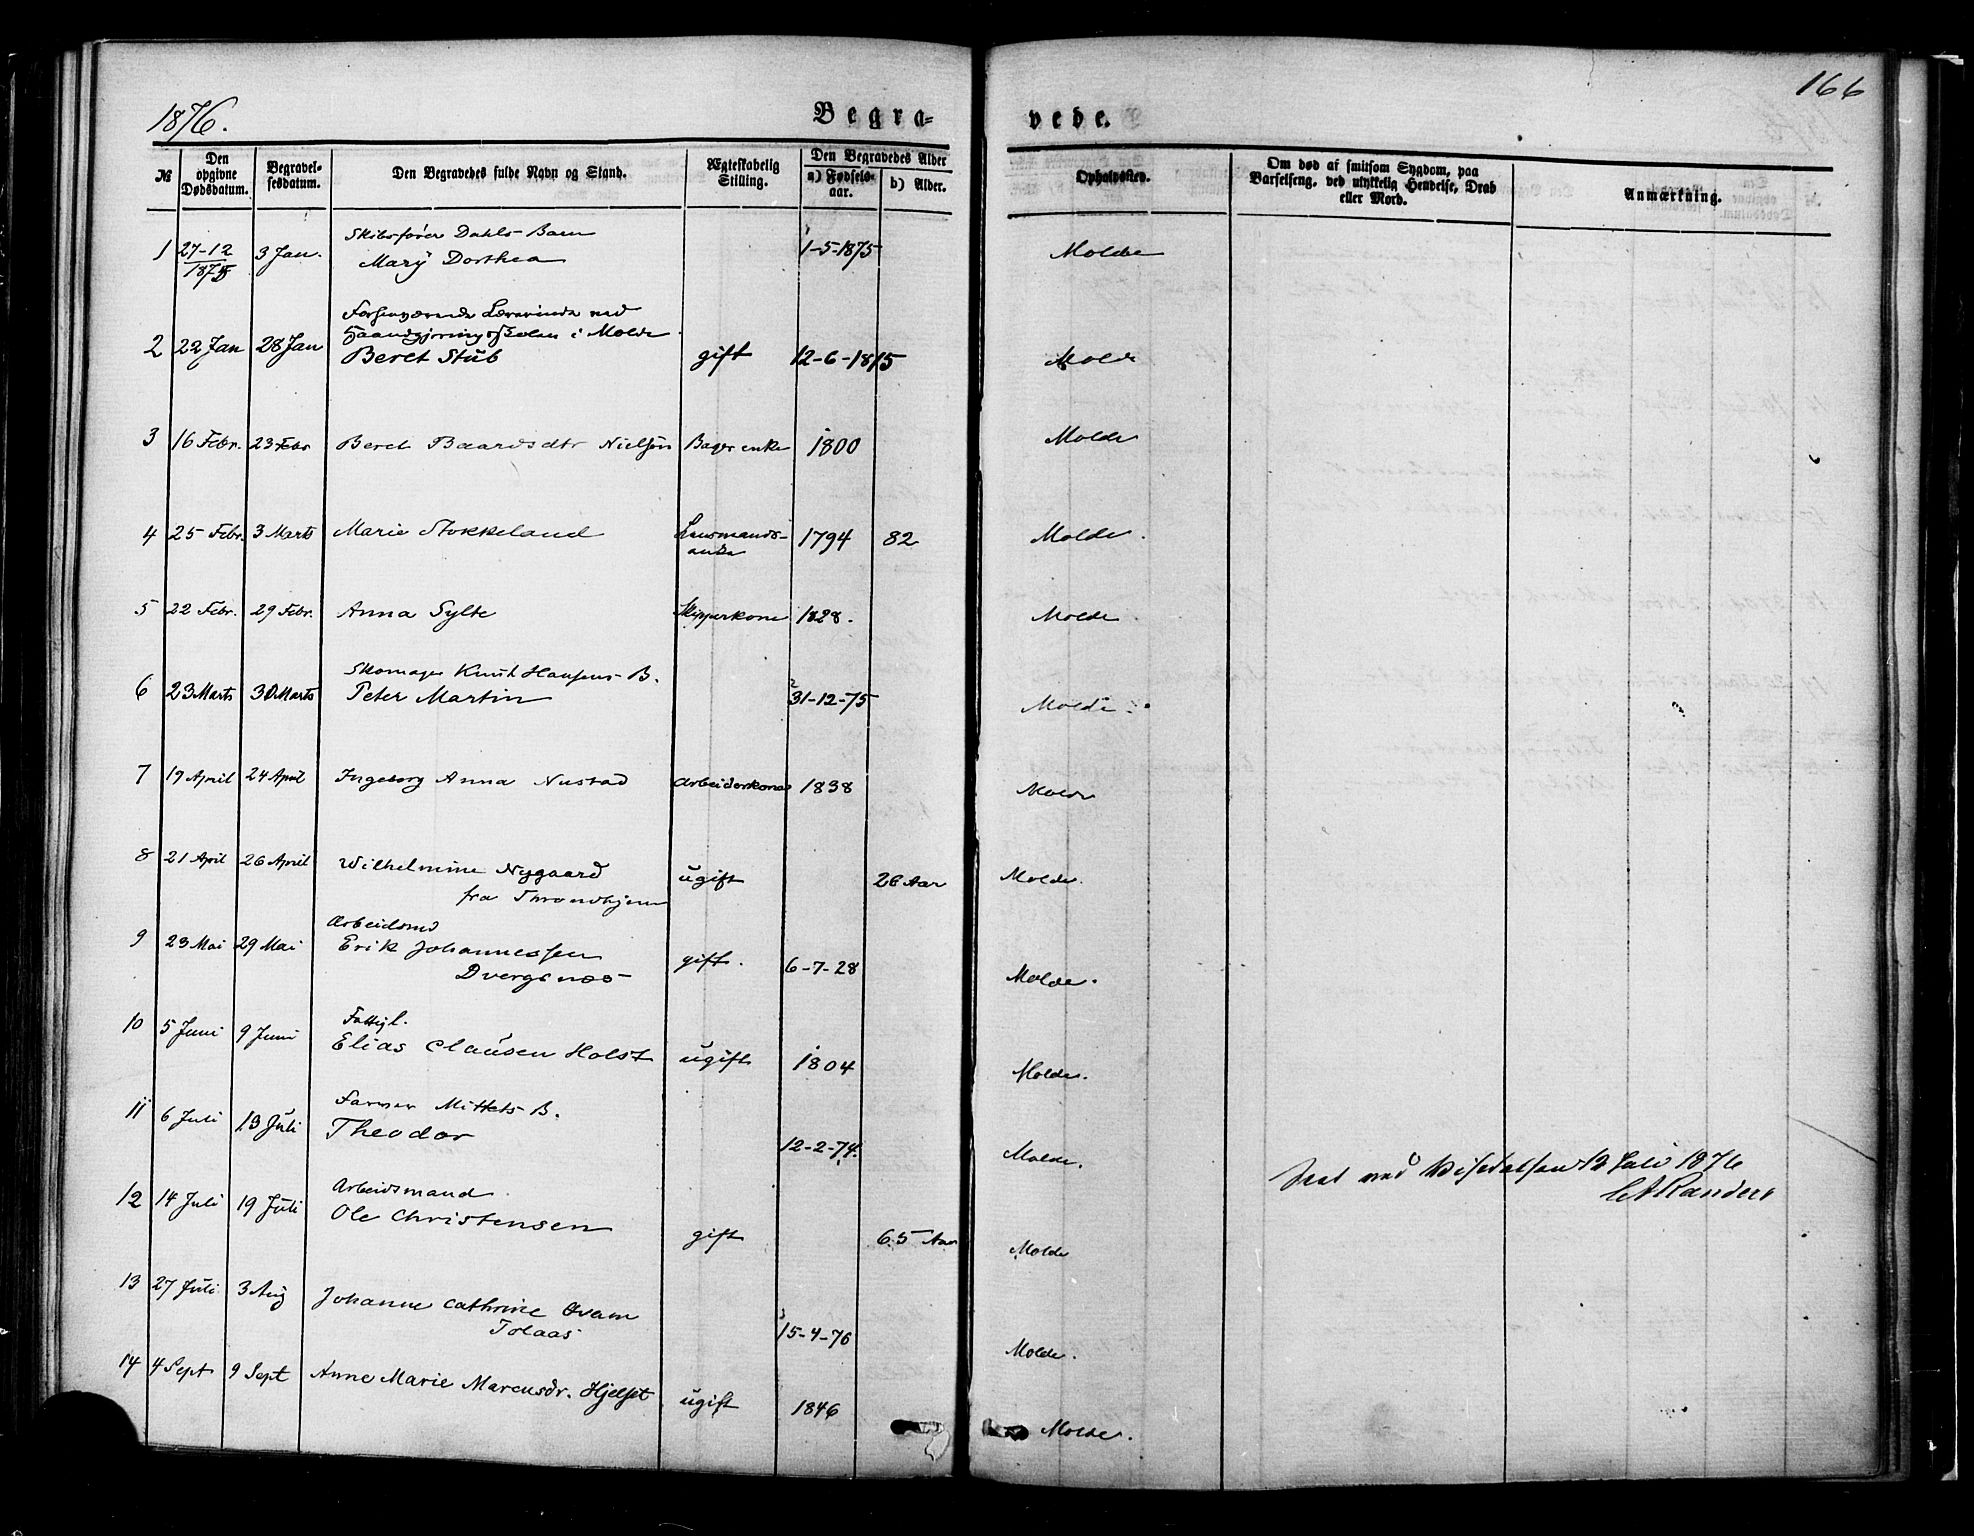 166
1876.
Begravede.
№ | Den opgivne Dødsdatum. | Begravelsesdatum. | Den Begravedes fulde Navn og Stand. | Ægteskabelig Stilling. | Den Begravedes Alder a) Fødselsaar. | b) Alder. | Opholdssted. | Om død af smitsom Sygdom, paa Barselseng, ved ulykkelig Hendelse, Drab eller Mord. | Anmærkning.
Skibsfører Dahls Barn
1 27-12 1875 3 Jan. Mary Dorthea 1-5-1875 Molde
Forhenværende Lærerinde ved
Haandgjerningsskolen i Molde
2 22 Jan 28 Jan Beret Stub gift 12-6-1815 Molde
3 16 Febr. 23 Febr Beret Baardsdtr Nielsen Bager enke 1800 Molde
4 25 Febr. 3 Marts Marie Stokkeland Lensmands- enke 1794 82 Molde.
5 22 Febr. 29 Febr. Anna Sylte Skipperkone 1828. Molde
Skomager Knut Hansens B.
6 23 Marts 30 Marts Peter Martin 31-12-75 Molde
7 19 April 24 April Ingeborg Anna Nustad Arbeiderkone 1838 Molde
8 21 April 26 April Wilhelmine Nygaard ugift 26 Aar Molde.
fra Throndhjem
Arbeidsmd
9 23 Mai 29 Mai Erik Johannessen gift. 6-7-28 Molde.
Dvergsnes
Fattigl.
10 5 Juni 9 Juni Elias Clausen Holst ugift 1804 Molde.
Farver Mittets B.
11 6 Juli 13 Juli Theodor 12-2-74. Molde.
Seet ved Visitatsen 12 Juli 1876
Randers
Arbeidsmand
12 14 Juli 19 Juli Ole Christensen gift 65 Aar Molde
13 27 Juli 3 Aug Johanne Cathrine Ovam 15-4-76 Molde.
Tolaas
14 4 Sept 9 Sept Anne Marie Marcusdr. Hjelset ugift 1846 Molde.